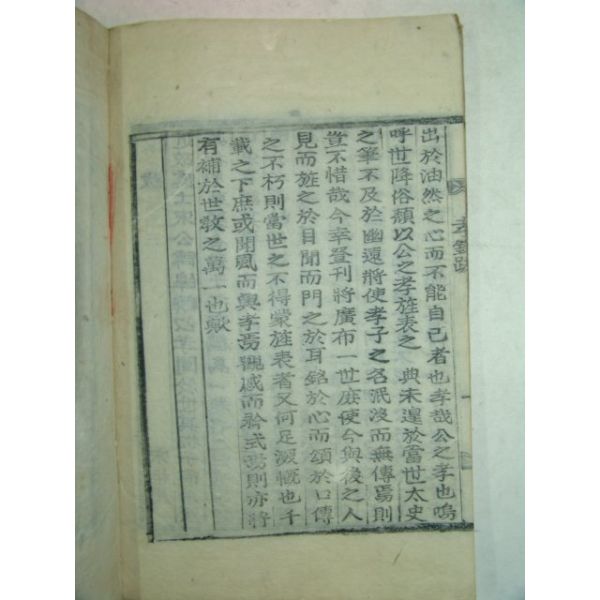 孝錄跋
出於油然之心而不能自己者也孝哉公之孝也嗚
呼世降俗頹以公之孝旌表之典未遑於當世太史
之筆不及於幽遠將使孝子之名泯沒而無傳焉則
豈不惜哉今幸登刊將廣布一世庶使今與後之人
見而旌之於目聞而門之於耳銘於心而頌於口傳
之不朽則當世之不得蒙旌表者又何足濺慨也千
載之下庶或聞風而興孝焉觀感而矜式焉則亦將
有補於世敎之萬一也歟